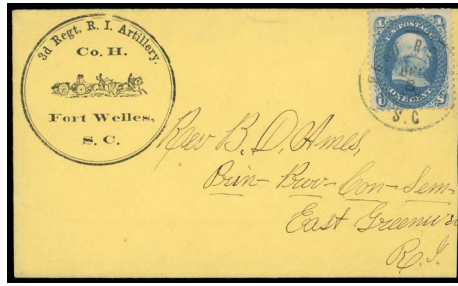 3d Regt. R. I. Artillery.
Co. H.
Fort Welles,
S. C.
U.S. POSTAGE
ONE CENT
DEC
S. C
Rev B. D. Ames,
Prin- Prov- Con- Sem-
East Greenw
R. I.